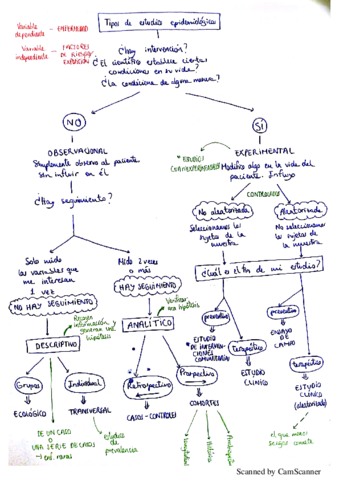 Tipos de estudios epidemiológicos
Variable dependiente - ENFERMEDAD
Variable independiente - FACTORES DE RIESGO, EXPOSICIÓN
¿Hay intervención?
¿El científico establece ciertas
condiciones en su vida?
¿La condiciona de alguna manera?
NO
SÍ
OBSERVACIONAL
Simplemente observo al paciente
sin influir en él
¿Hay seguimiento?
ESTUDIOS
EXPERIMENTAL
Modifico algo en la vida del
paciente. Influyo
CONTROLADOS
No aleatorizado
Seleccionamos los
sujetos de la
muestra
Aleatorizado
No seleccionamos
los sujetos de
la muestra
Solo mido
las variables que
me interesan
1 vez
NO HAY SEGUIMIENTO
Mido 2 veces
o más
HAY SEGUIMIENTO
¿Cuál es el fin de mi estudio?
Recoger
información y
generar una
hipótesis
DESCRIPTIVO
Verificar
una hipótesis
ANALÍTICO
preventivo
ESTUDIO
DE INTERVEN-
CIONES
COMUNITARIAS
terapéutico
ESTUDIO
CLÍNICO
preventivo
ENSAYO
DE
CAMPO
terapéutico
ESTUDIO
CLÍNICO
(aleatorizado)
el que menos
sesgos comete
Grupos
ECOLÓGICO
Individual
TRANSVERSAL
Estudios de
prevalencia
DE UN CASO
O
UNA SERIE DE CASOS
→ enf. raras
Retrospectivo
CASOS-CONTROLES
Prospectivo
COHORTES
Histórica
Scanned by CamScanner